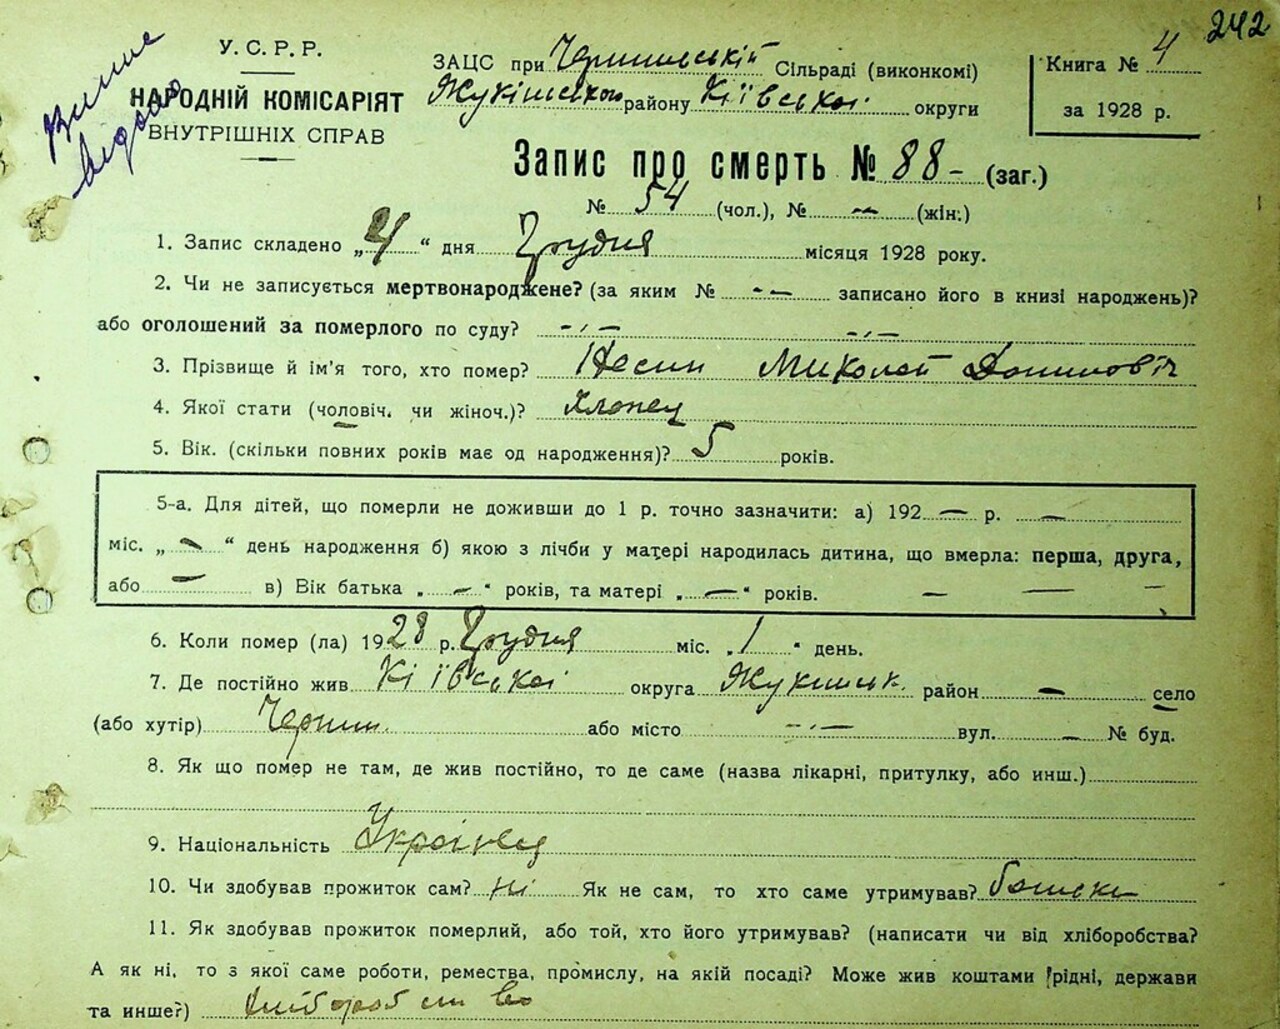 242
Витяг видано
У.С.Р.Р.
НАРОДНІЙ КОМІСАРІЯТ
ВНУТРІШНІХ СПРАВ
ЗАЦС при Чернинській Сільраді (виконкомі)
Жукинського району Київської округи
Книга № 4
за 1928 р.
Запис про смерть № 88 - (заг.)
№ 54 (чол.), № — (жін.)
1. Запис складено „4“ дня Грудня місяця 1928 року.
2. Чи не записується мертвонароджене? (за яким № -- записано його в книзі народжень)?
або оголошений за померлого по суду? -,- -,-
3. Прізвище й ім'я того, хто помер? Несин Миколай
4. Якої стати (чоловіч. чи жіноч.)? Хлопец
5. Вік. (скільки повних років має од народження)? 5 років.
5-а. Для дітей, що померли не доживши до 1 р. точно зазначити: а) 192 — р. —
міс. „ — “ день народження б) якою з лічби у матері народилась дитина, що вмерла: перша, друга,
або — в) Вік батька „ — “ років, та матері „ — “ років. — — —
6. Коли помер (ла) 1928 р. Грудня міс. „1“ день.
7. Де постійно жив Київської округа Жукинськ. район — село
(або хутір) Чернин. або місто -,- вул. — № буд.
8. Як що помер не там, де жив постійно, то де саме (назва лікарні, притулку, або инш.)
9. Національність Українец
10. Чи здобував прожиток сам? Ні Як не сам, то хто саме утримував? батьки
11. Як здобував прожиток померлий, або той, хто його утримував? (написати чи від хліборобства?
А як ні, то з якої саме роботи, ремества, промислу, на якій посаді? Може жив коштами рідні, держави
та инше?) Хліборобство